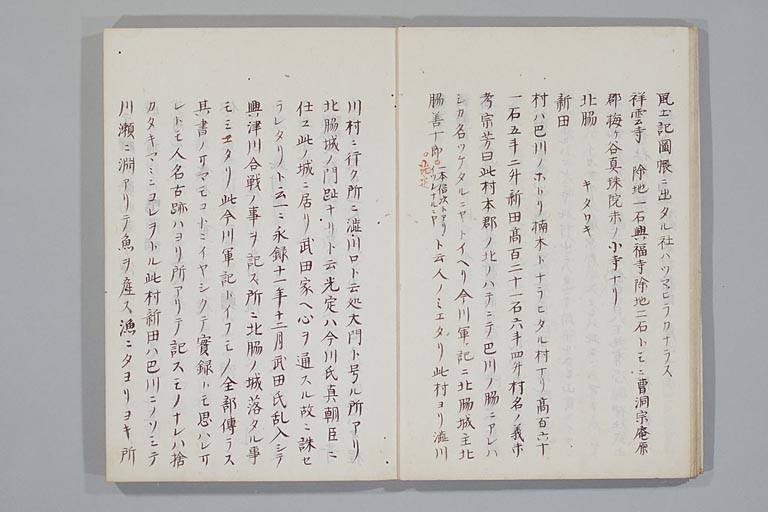 風土記圖帳ニ出タル社ハツマヒラカナラス
祥雲寺 除地一石興福寺除地二石トモニ曹洞宗庵原
郡梅ヶ谷真珠院末ノ小寺ナリ
北脇 キタワキ
新田
村ハ巴川ノホトリ楠木トナラヒタル村ナリ髙百六十
一石五斗二升新田髙百二十一石六斗四升村名ノ義未
考宗芳曰此村本郡ノ北ノハテニテ巴川ノ脇ニアレハ
シカ名ツケタルニヤトイヘリ今川軍記ニ北脇城主北
脇善十郎 一本信次トアリ ト云人ノミエタリ此村ヨリ澁川
川村ニ行ク所ニ澁川口ト云処大門ト号ル所アリ
北脇城ノ門趾ナリト云光定ハ今川氏真朝臣ニ
仕ヱ此ノ城ニ居リ武田家ヘ心ヲ通スル故ニ誅セ
ラレタリト云一ニ永録十一年十二月武田氏乱入シテ
興津川合戦ノ事ヲ記ス所ニ北脇ノ城落タル事
モミヱタリ此今川軍記トイフモノ全部傳ラス
其書ノサマモコトニイヤシクテ實録トモ思ハレサ
レトモ人名古跡ハヨリ所アリテ記スモノナレハ捨
カタキマヽニコレヲトル此村新田ハ巴川ニノソミテ
川瀬ニ淵アリテ魚ヲ産ス漁ニタヨリヨキ所